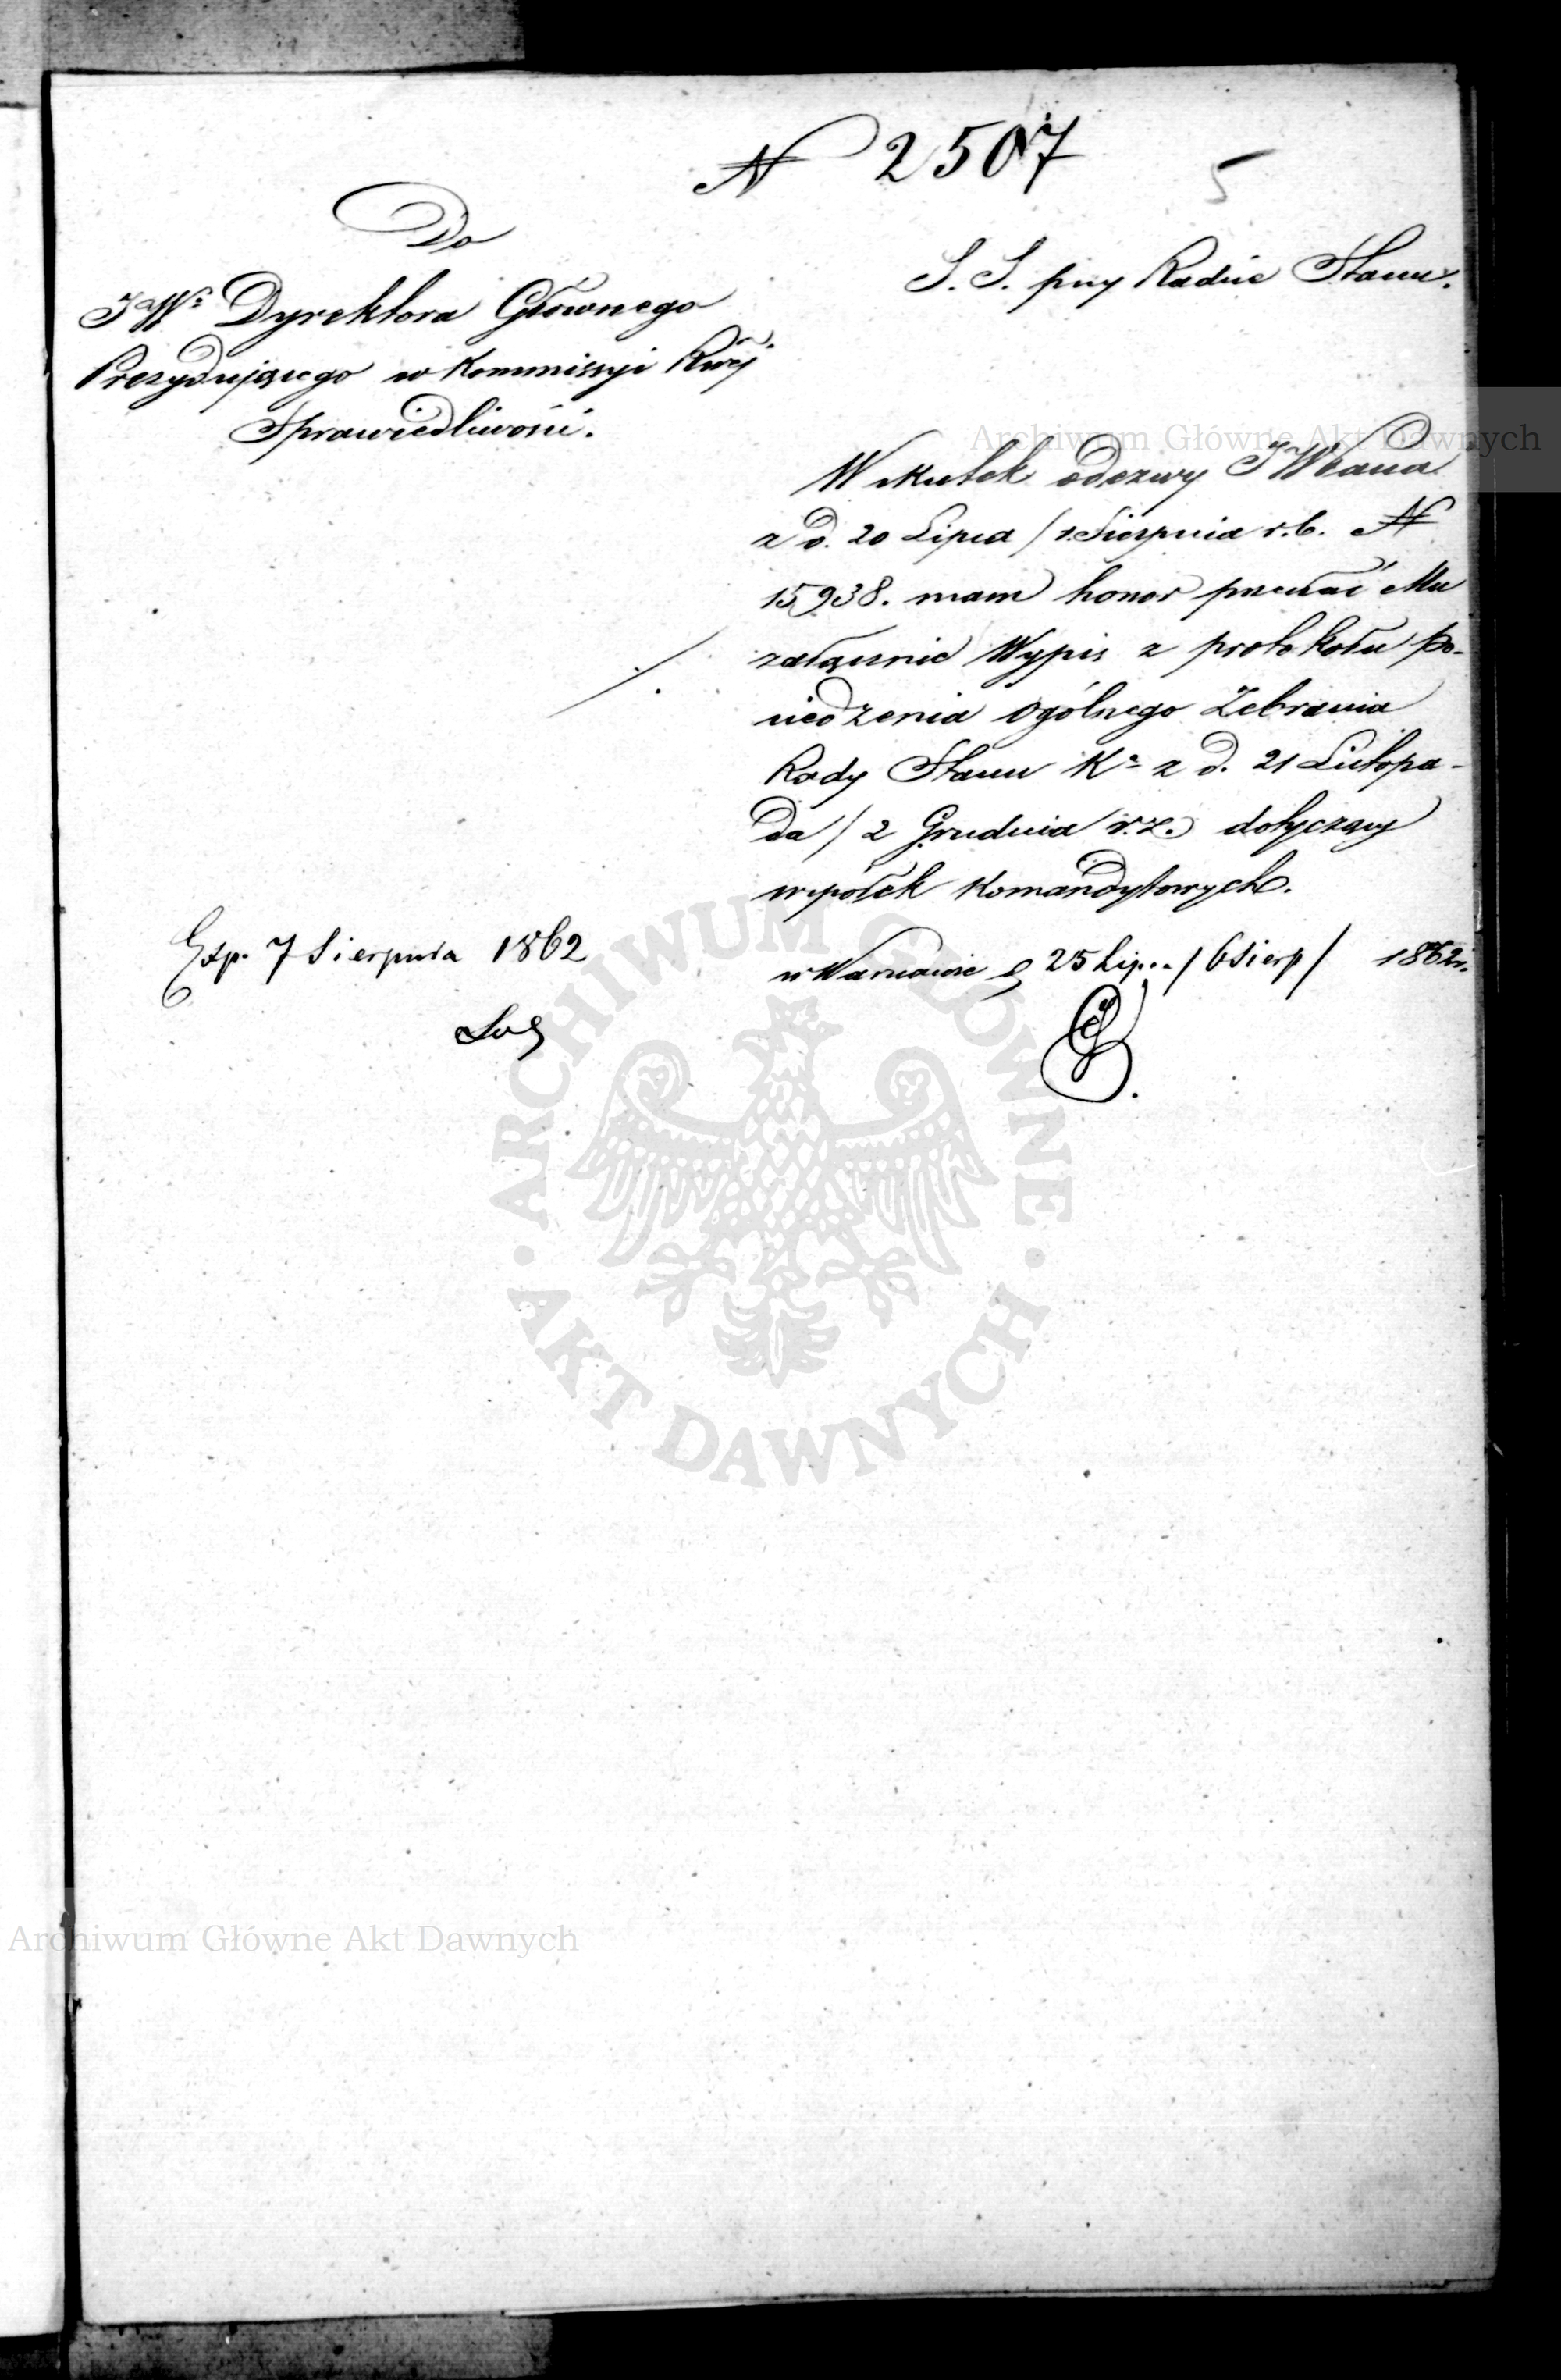 N 2507
5
Do
JWo Dyrektora Głównego
Prezydującego w Kommissyi Rwéj
Sprawiedliwości.
S. S. przy Radzie Stanu.
W skutek odezwy JWPana
z d. 20 Lipca / 1. Sierpnia r.b. N
15,938. mam honor przesłać Mu
załącznie Wypis z protokołu po-
siedzenia Ogólnego Zebrania
Rady Stanu Ka z d. 21 Listopa-
da / 2 Grudnia r.z. dotyczący
współek Komandytowych.
w Warszawie d 25 Lipca / 6 Sierp / 1862 r.
Exp. 7 Sierpnia 1862
Archiwum Główne Akt Dawnych
ARCHIWUM GŁÓWNE · AKT DAWNYCH ·
Archiwum Główne Akt Dawnych